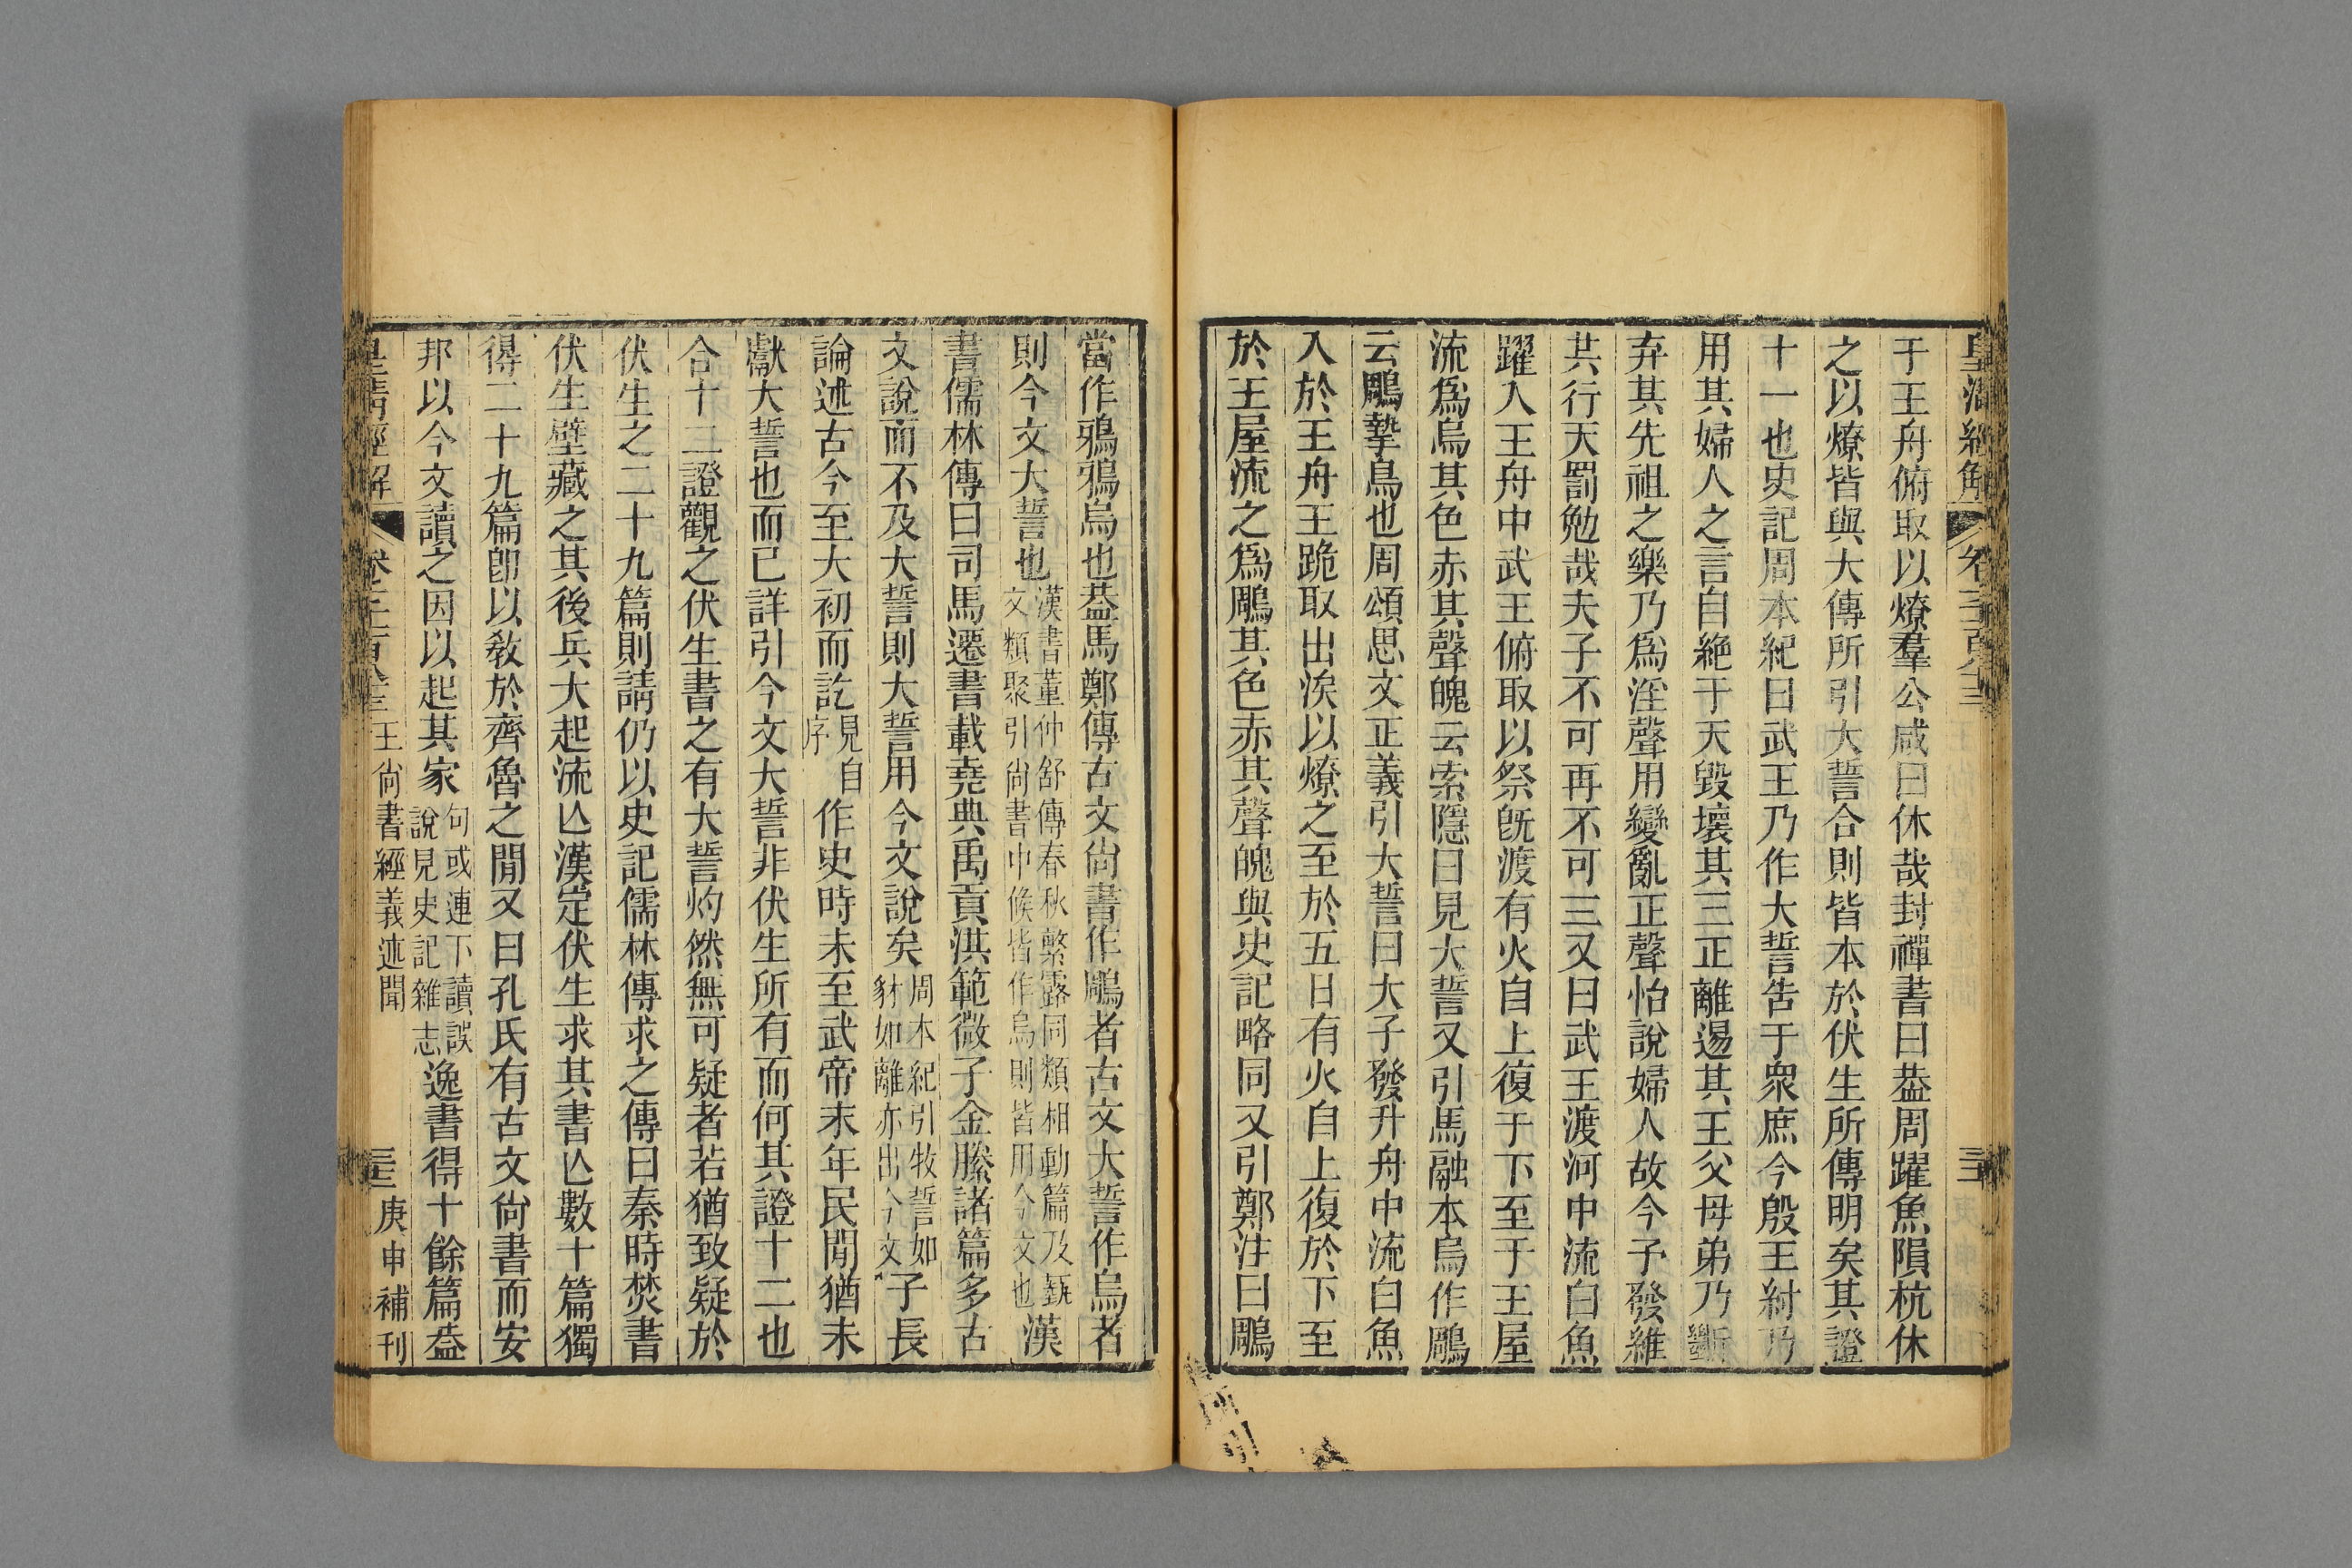 皇清經解
卷一千一百八十三
于王舟俯取以燎羣公咸曰休哉封禪書曰葢周躍魚隕杭休
之以燎皆與大傳所引大誓合則皆本於伏生所傳明矣其證
十一也史記周本紀曰武王乃作大誓告于衆庶今殷王紂乃
用其婦人之言自絕于天毀壞其三正離逷其王父母弟乃斷
弃其先祖之樂乃爲淫聲用變亂正聲怡說婦人故今予發維
共行天罰勉哉夫子不可再不可三又曰武王渡河中流白魚
躍入王舟中武王俯取以祭旣渡有火自上復于下至于王屋
流爲烏其色赤其聲魄云索隱曰見大誓又引馬融本烏作鵰
云鵰摯鳥也周頌思文正義引大誓曰大子發升舟中流白魚
入於王舟王跪取出涘以燎之至於五日有火自上復於下至
於王屋流之爲鵰其色赤其聲魄與史記略同又引鄭注曰鵰
當作鴉鴉烏也葢馬鄭傳古文尙書作鵰者古文大誓作烏者
則今文大誓也漢書董仲舒傳春秋繁露同類相動篇及藝文類聚引尙書中候皆作烏則皆用今文也漢
書儒林傳曰司馬遷書載堯典禹貢洪範微子金縢諸篇多古
文說而不及大誓則大誓用今文說矣周本紀引牧誓如豺如離亦出今文子長
論述古今至大初而訖見自序作史時未至武帝末年民閒猶未
獻大誓也而已詳引今文大誓非伏生所有而何其證十二也
合十二證觀之伏生書之有大誓灼然無可疑者若猶致疑於
伏生之二十九篇則請仍以史記儒林傳求之傳曰秦時焚書
伏生壁藏之其後兵大起流亾漢定伏生求其書亾數十篇獨
得二十九篇卽以敎於齊魯之閒又曰孔氏有古文尙書而安
邦以今文讀之因以起其家句或連下讀誤說見史記雜志逸書得十餘篇葢
皇清經解 王尙書經義述聞 庚申補刊